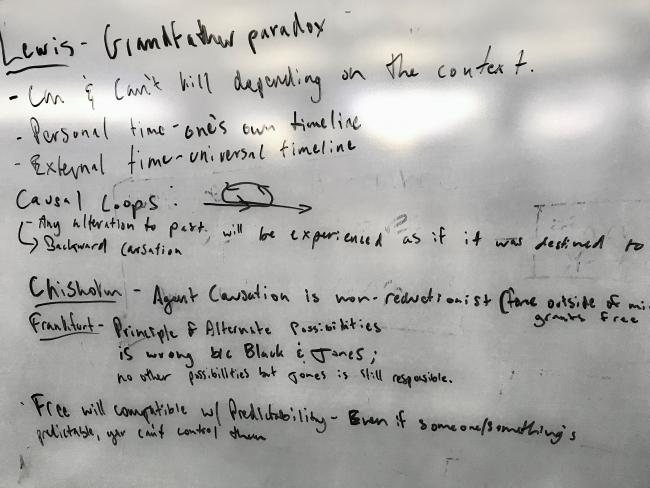 Lewis - Grandfather paradox
- Can & Can't kill depending on the context.
- Personal time - one's own timeline
- External time - universal timeline
Causal Loops:
- Any alteration to past will be experienced as if it was destined to
Backward causation
Chisholm - Agent Causation is non-reductionist (force outside of mi
grants free
Frankfurt - Principle of Alternate Possibilities
is wrong b/c Black & Jones;
no other possibilities but Jones is still responsible.
Free will compatible w/ Predictability - Even if someone/something's
predictable, you can't control them